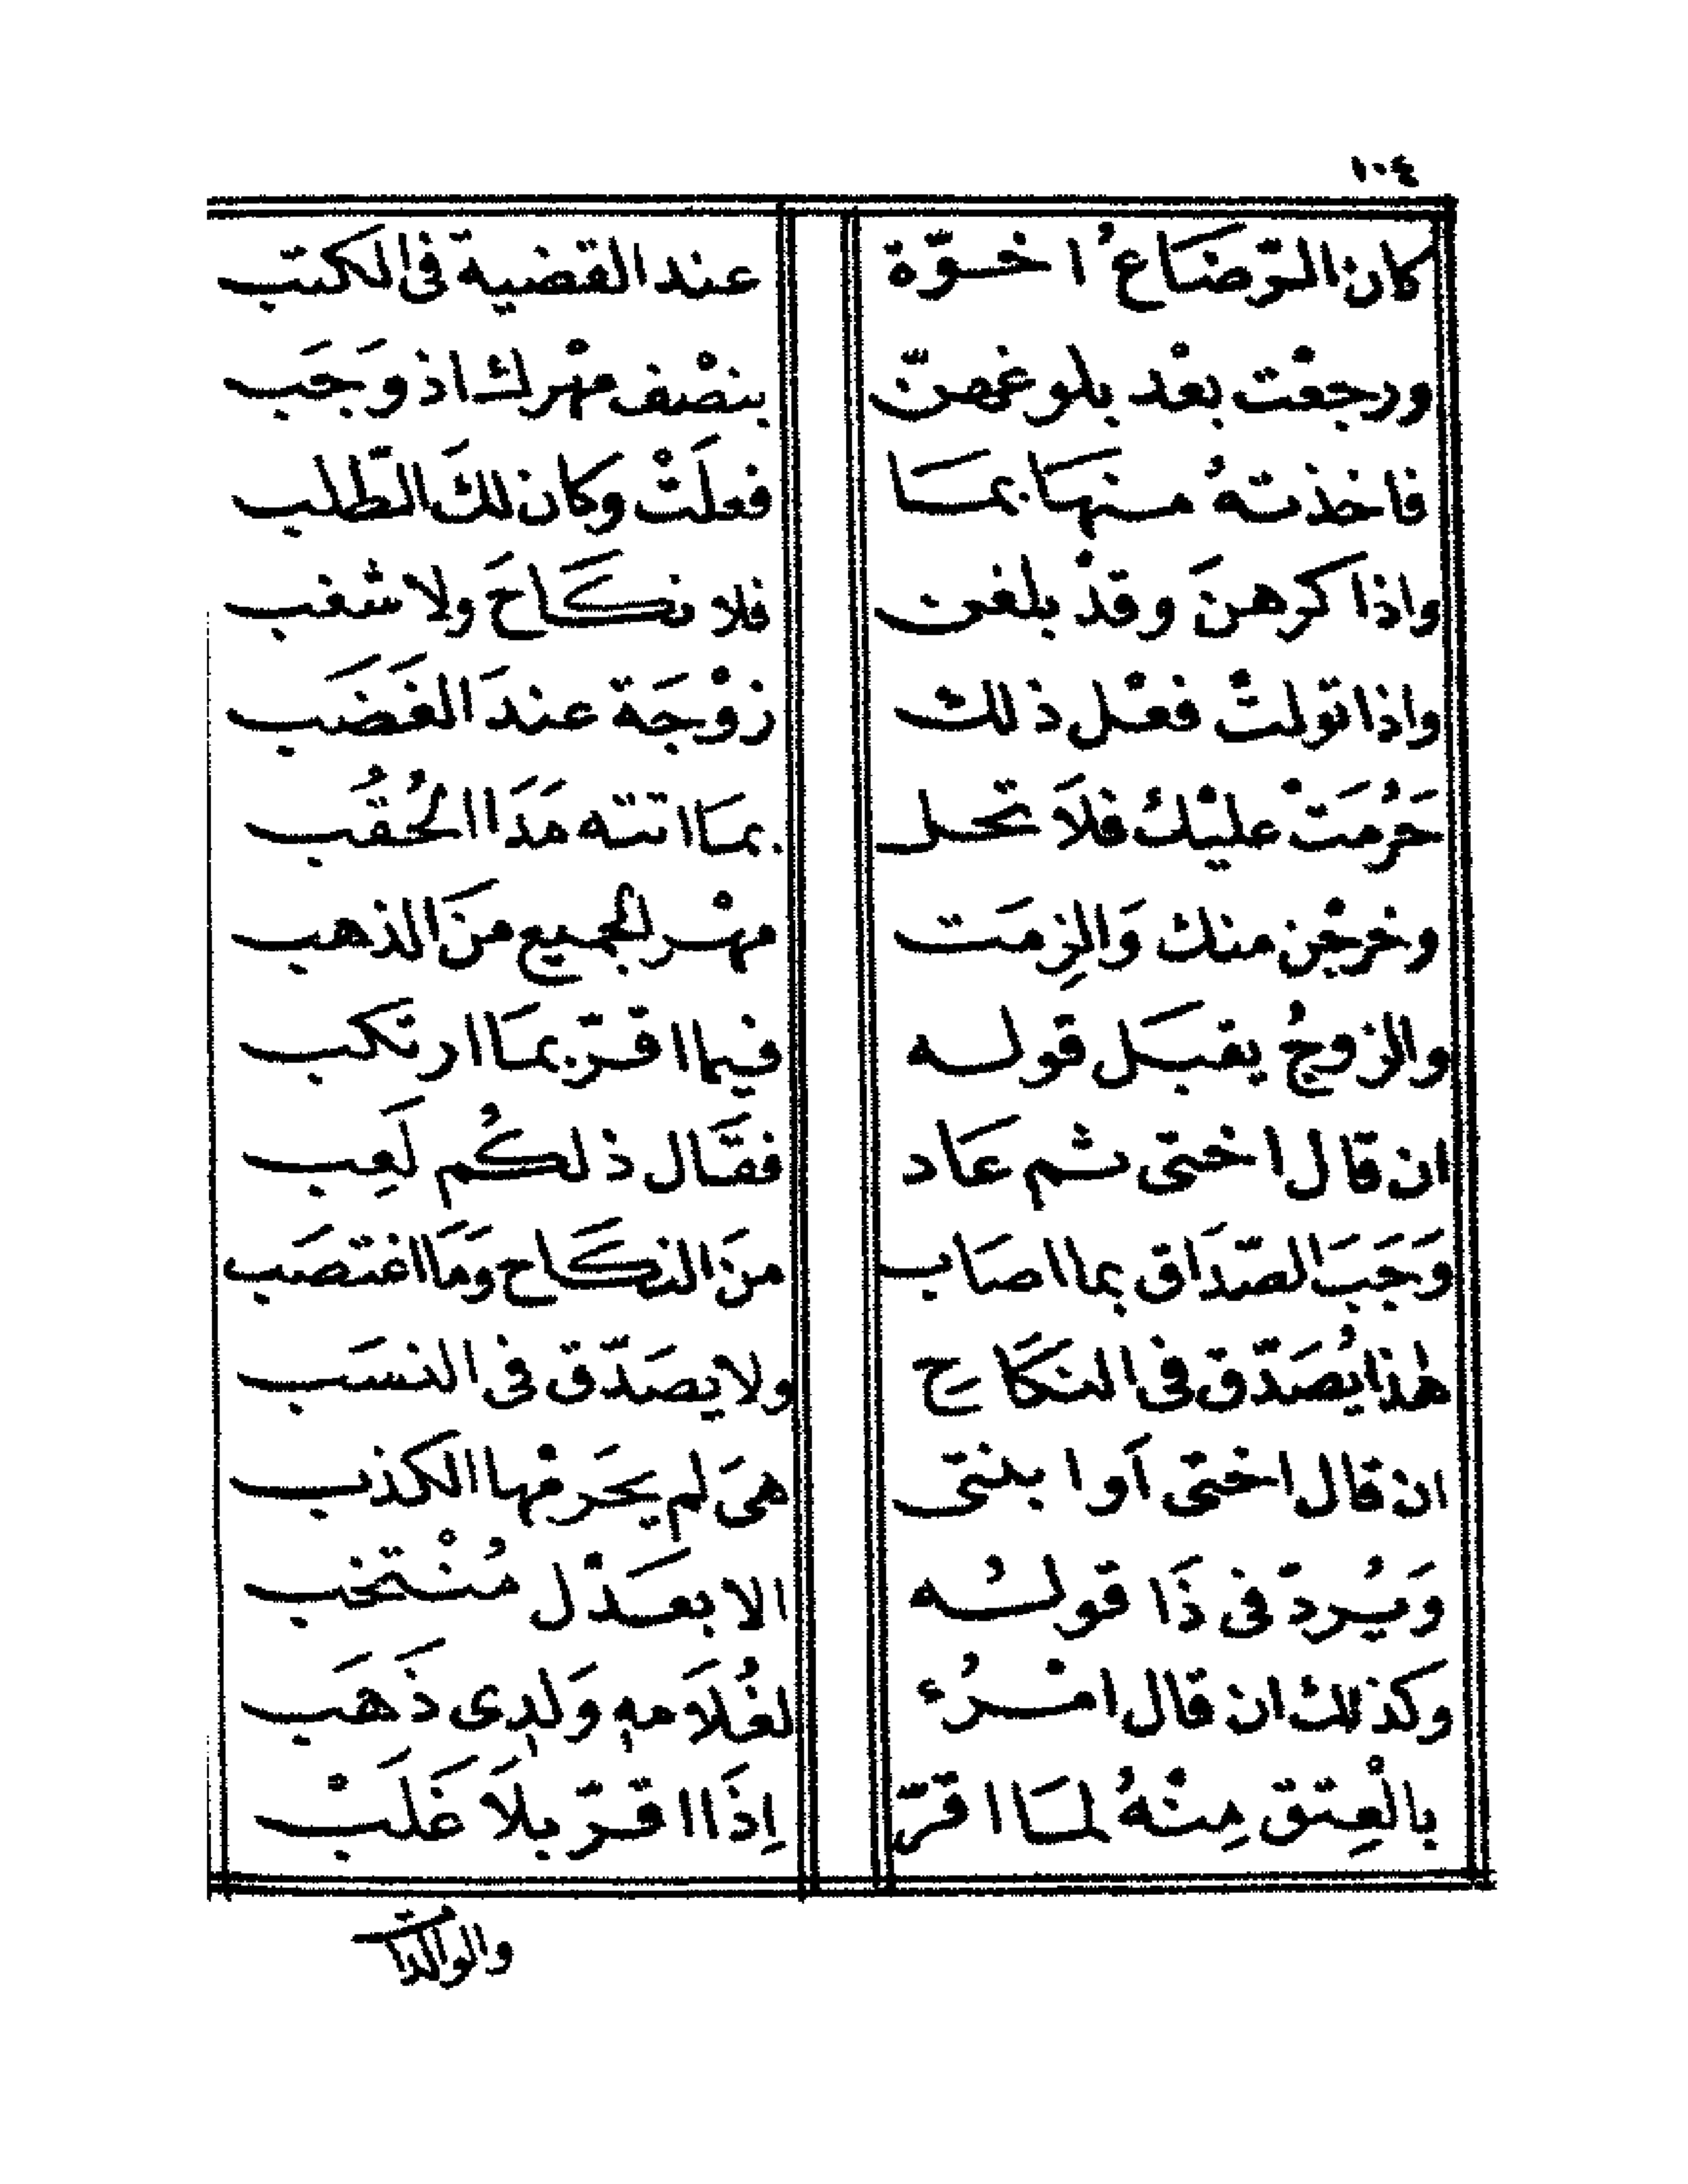 ١٠٤
كان الرّضَاعُ اخوّة عند القضية فى الكتب
ورجعْت بعْد بلوغهنّ بنصْف مهْرك اذ وَجَب
فاخذتهُ منهَا بمَا فعلَتْ وكان لكَ الطّلب
واذا كرهنَ وقدْ بلغن فلا نكَاحَ ولا شغب
واذا تولتْ فعْل ذلك زوْجَة عندَ الغَضَب
حَرُمَتْ عليْكَ فلَا تحل بمَا اتته هَذَا الحُقُب
وخرجْن منك وَالزِمَت مهْر الجميع منَ الذهب
والزوجُ يقبَل قوله فيما اقرّ بمَا ارتكب
ان قال اختى ثم عَاد فقَال ذلكُم لَعِب
وَجَبَ الصّدَاق بما اصَاب منَ النكَاح وَمَا اغتصَب
هٰذا يُصَدّق فى النكَاحِ ولا يصَدّق فى النسَب
ان قال اختى اَو ابنتى هىَ لم يحَرمْها الكذب
وَيُردّ فى ذَا قولُه الا بعَدْل مُنْتخب
وكذلك ان قال امْرُء لغُلَامهِ وَلدِى ذَهَب
بالْعِتق مِنْهُ لمَا اقَرّ اِذَا اقرّ بلَا غَلَبْ
والوالدات